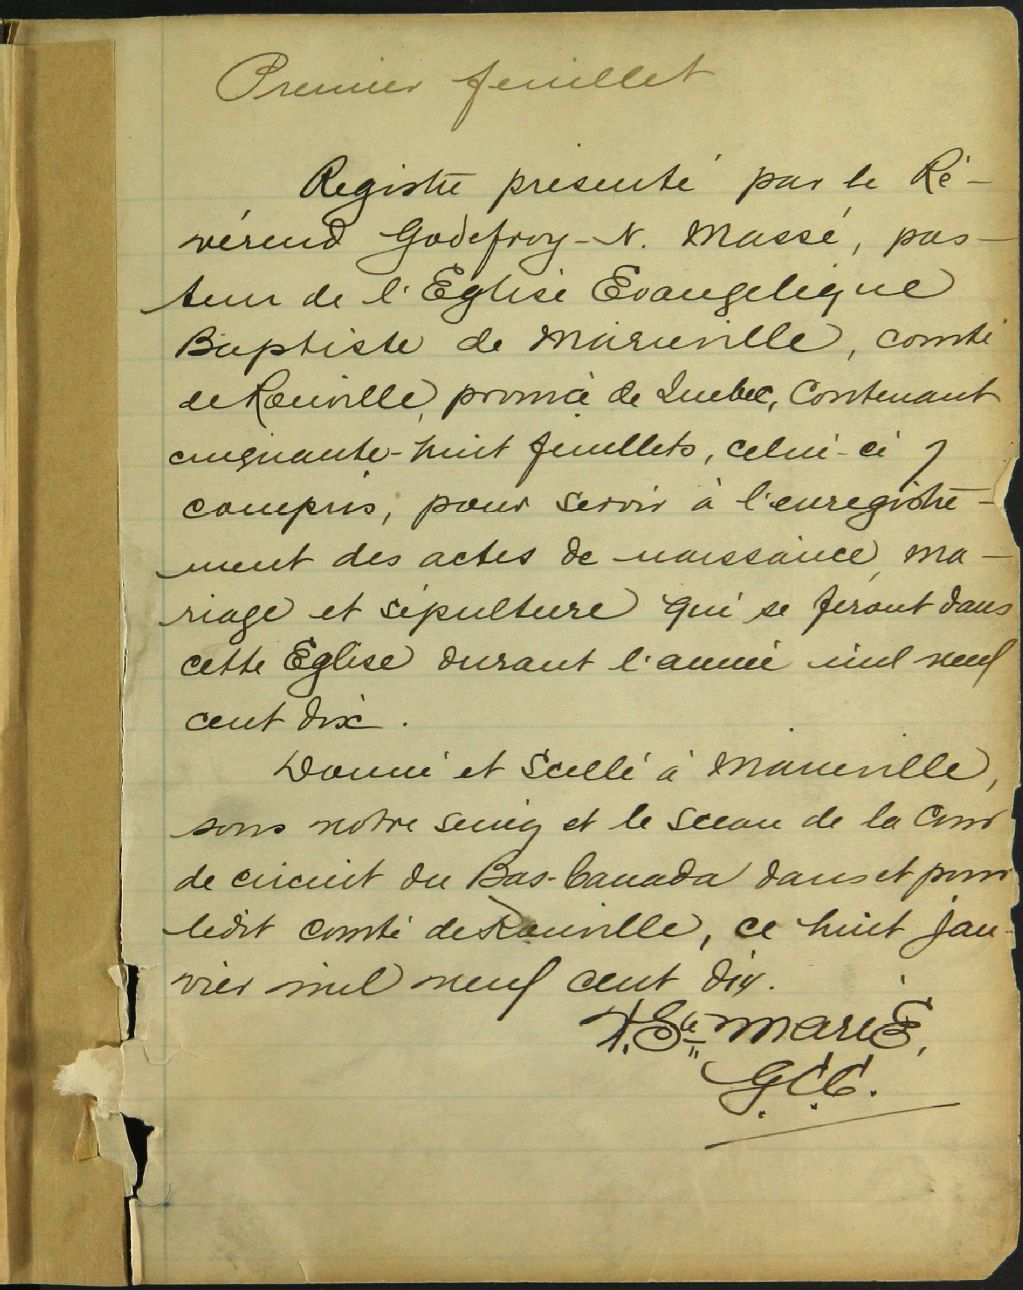 Premier feuillet
Registre présenté par le Ré-
vérend Godefroy-N. Massé, pas-
teur de l'Eglise Evangelique
Baptiste de Marieville, comté
de Rouville, province de Quebec, Contenant
cinquante-huit feuillets, celui-ci
compris, pour servir à l'enregistre-
ment des actes de naissance, ma-
riage et sépulture qui se feront dans
cette Eglise durant l'année mil neuf
cent dix.
Donné et Scellé à Marieville,
sous notre seing et le sceau de la Cour
de circuit du Bas-Canada dans et pour
ledit comté de Rouville, ce huit jan-
vier mil neuf cent dix.
Ste Marie,
G.C.C.